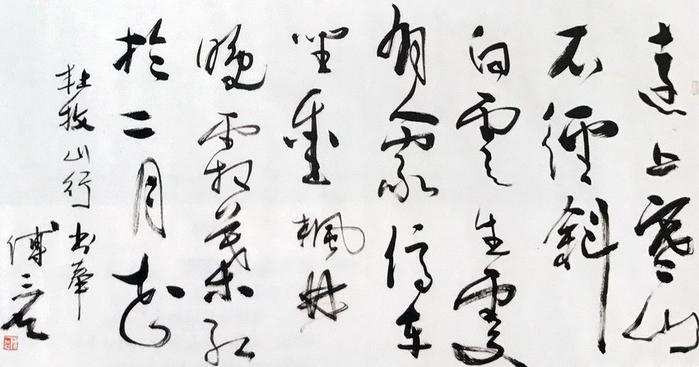 遠上寒山
石徑斜
白雲生處
有人家停車
坐愛楓林
晚霜葉紅
於二月花
杜牧山行 書
傅三